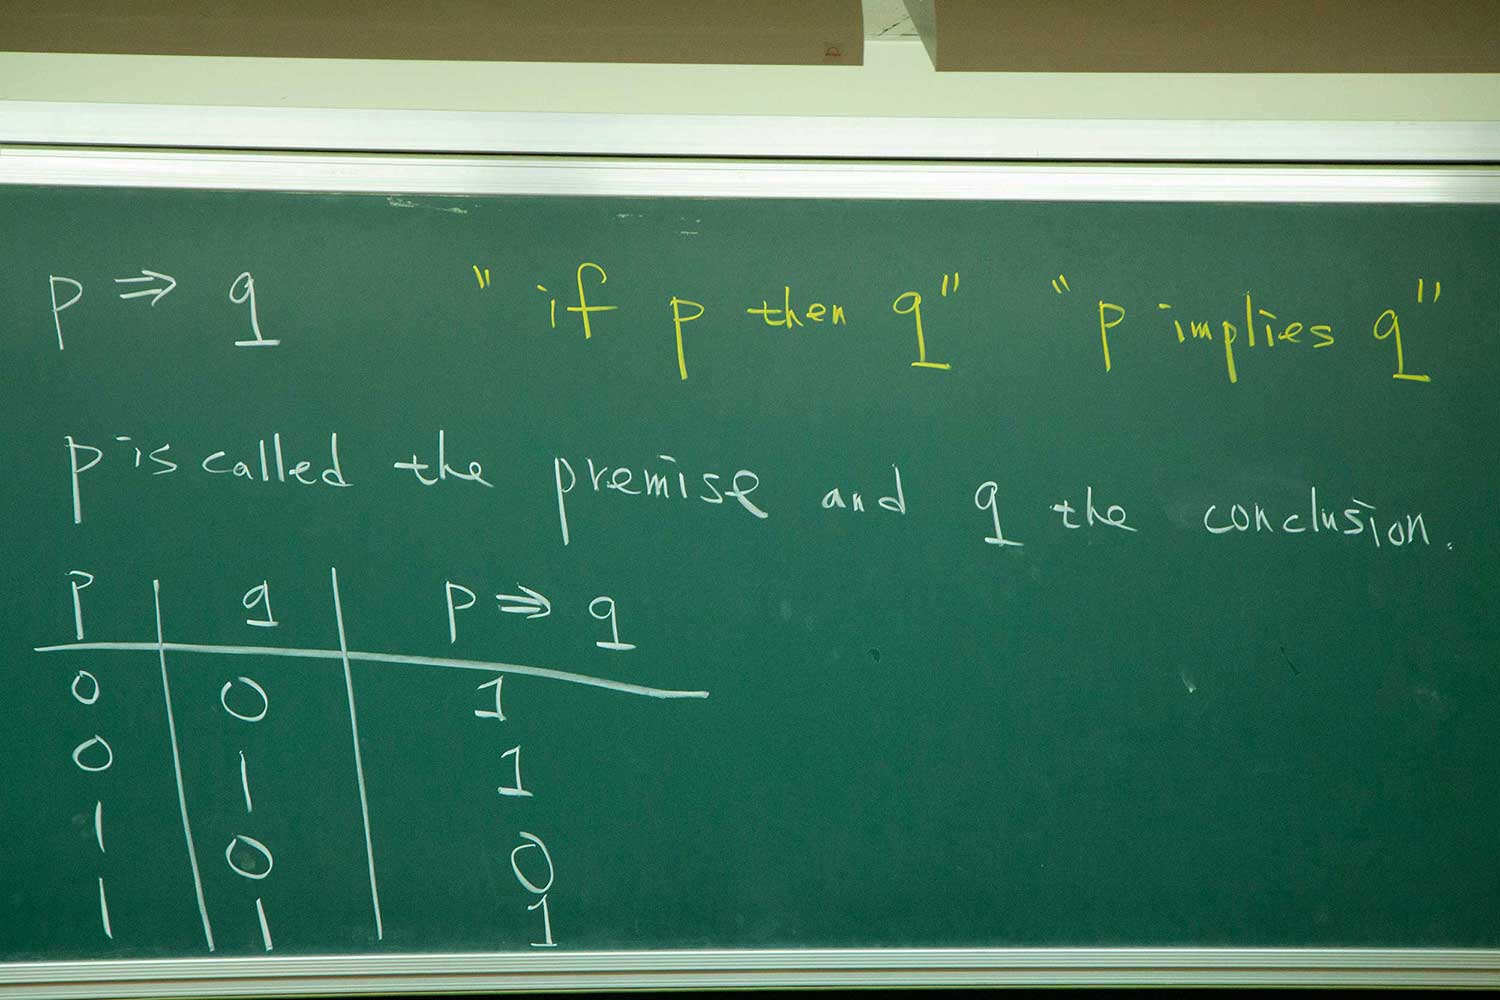 p ⇒ q "if p then q" "p implies q"
p is called the premise and q the conclusion.
p q p ⇒ q
0 0 1
0 1 1
1 0 0
1 1 1